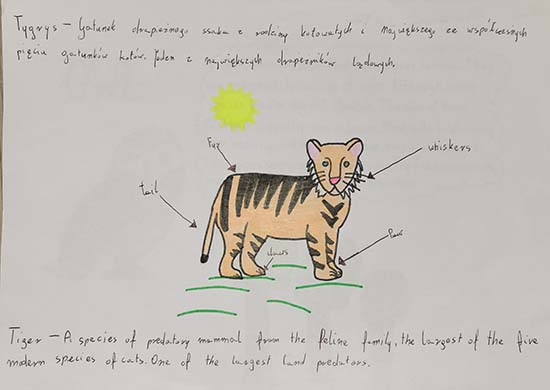 Tygrys – Gatunek drapieżnego ssaka z rodziny kotowatych i największego ze współczesnych
pięciu gatunków kotów. Jeden z największych drapieżników lądowych.
Fur
whiskers
tail
claws
Paw
Tiger – A species of predatory mammal from the feline family, the largest of the five
modern species of cats. One of the largest land predators.